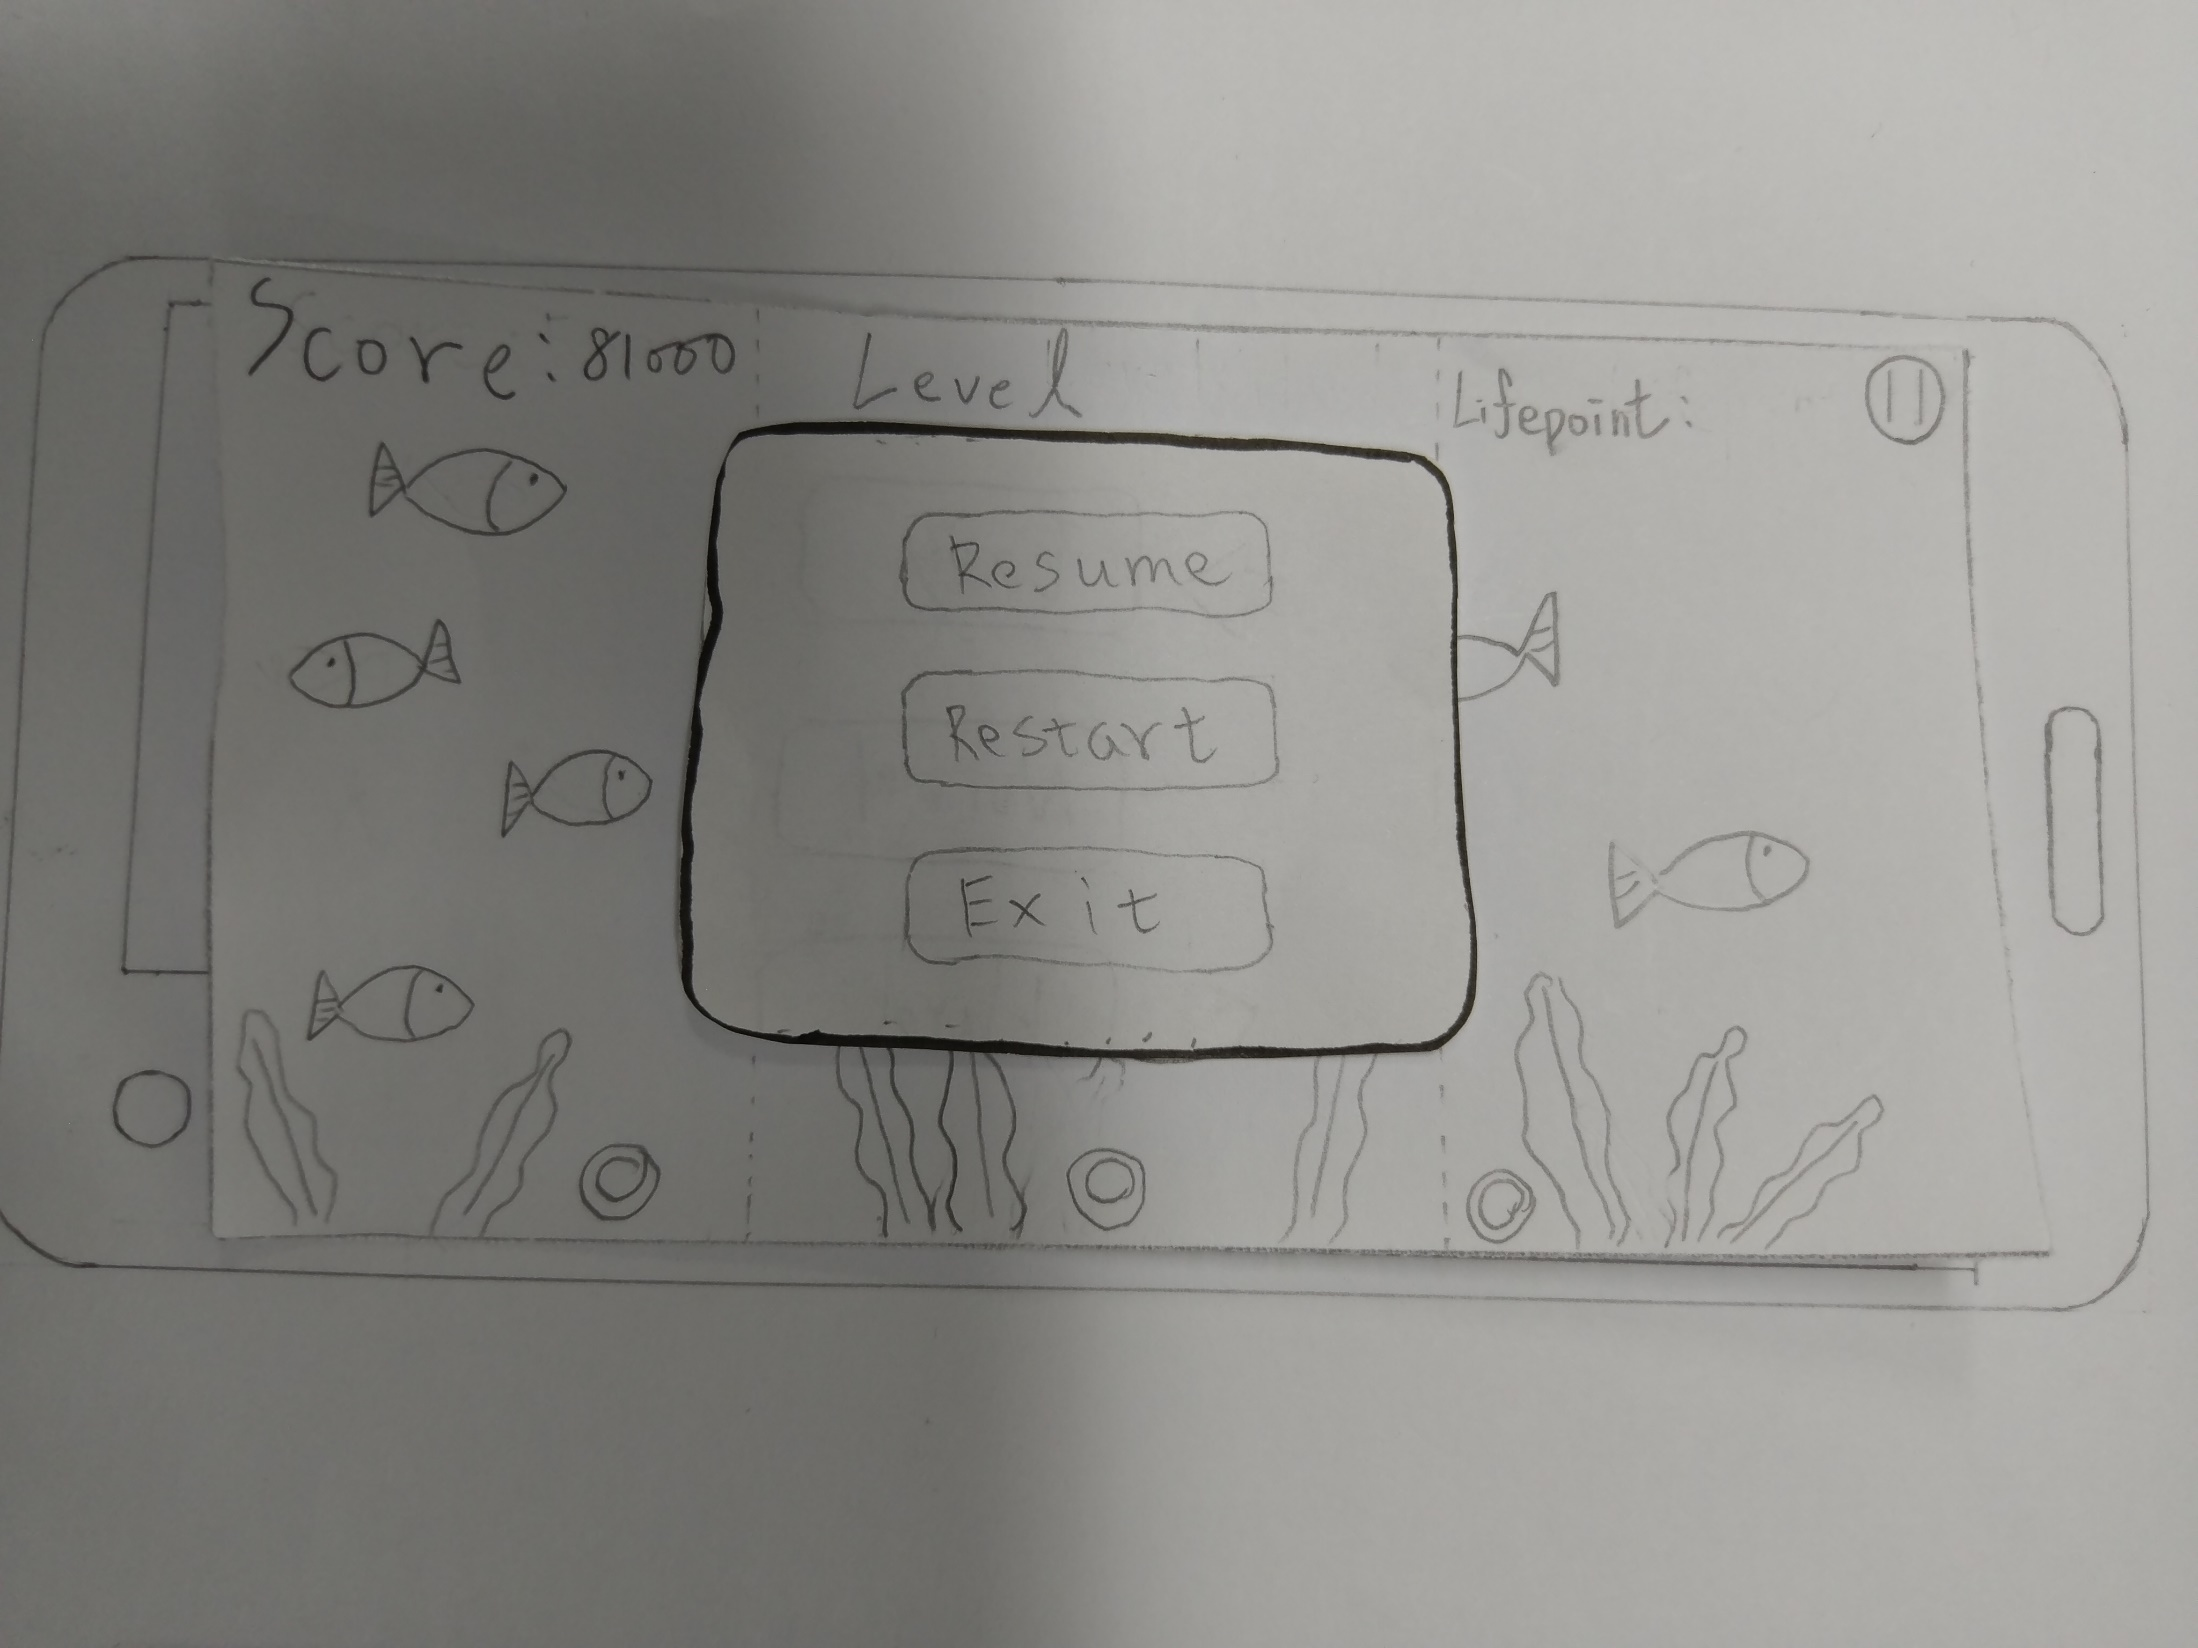 Score: 81000
Level
Lifepoint:
Resume
Restart
Exit